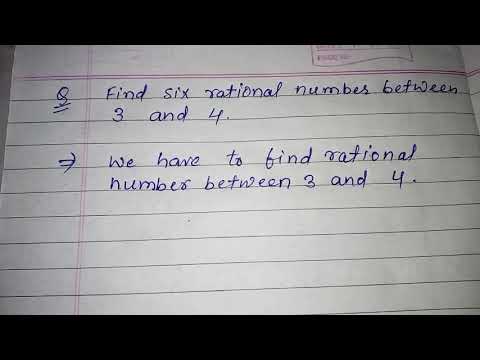 Q Find six rational number between
3 and 4.
⇒ We have to find rational
number between 3 and 4.